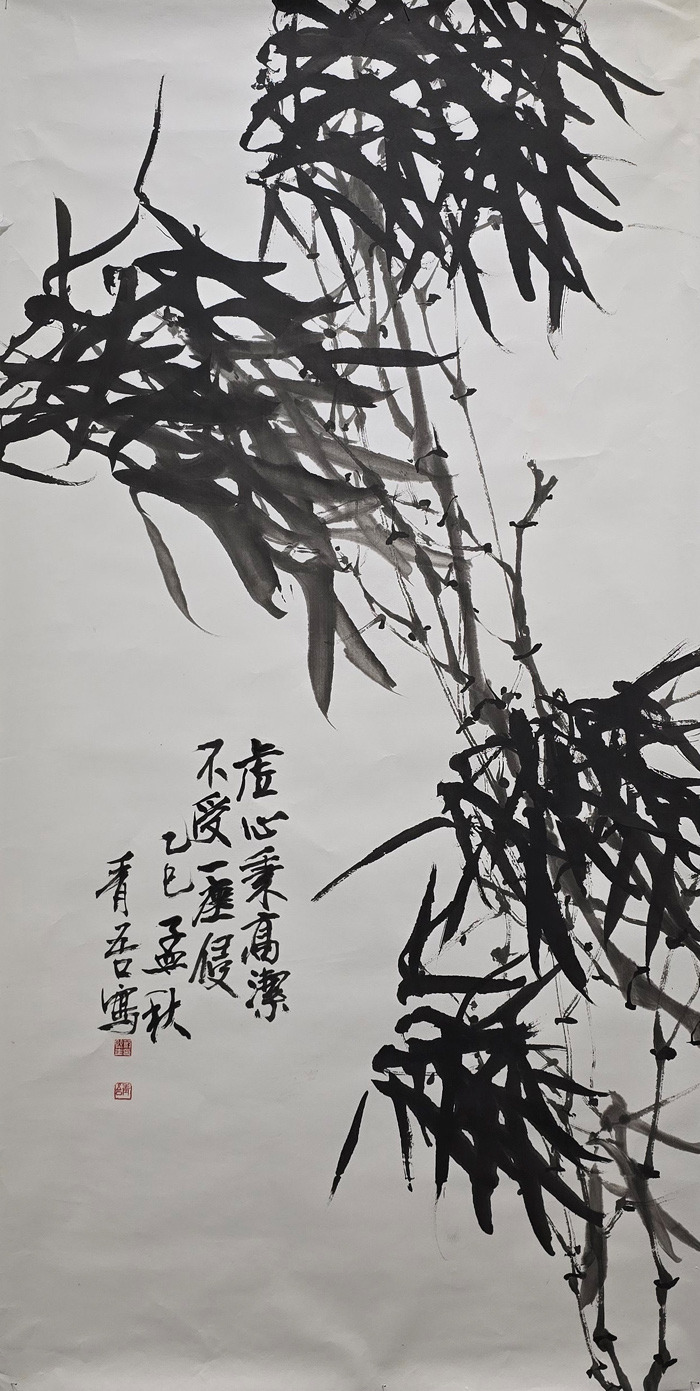 虚心秉高潔
不受一塵侵
乙巳孟秋
青吾寫